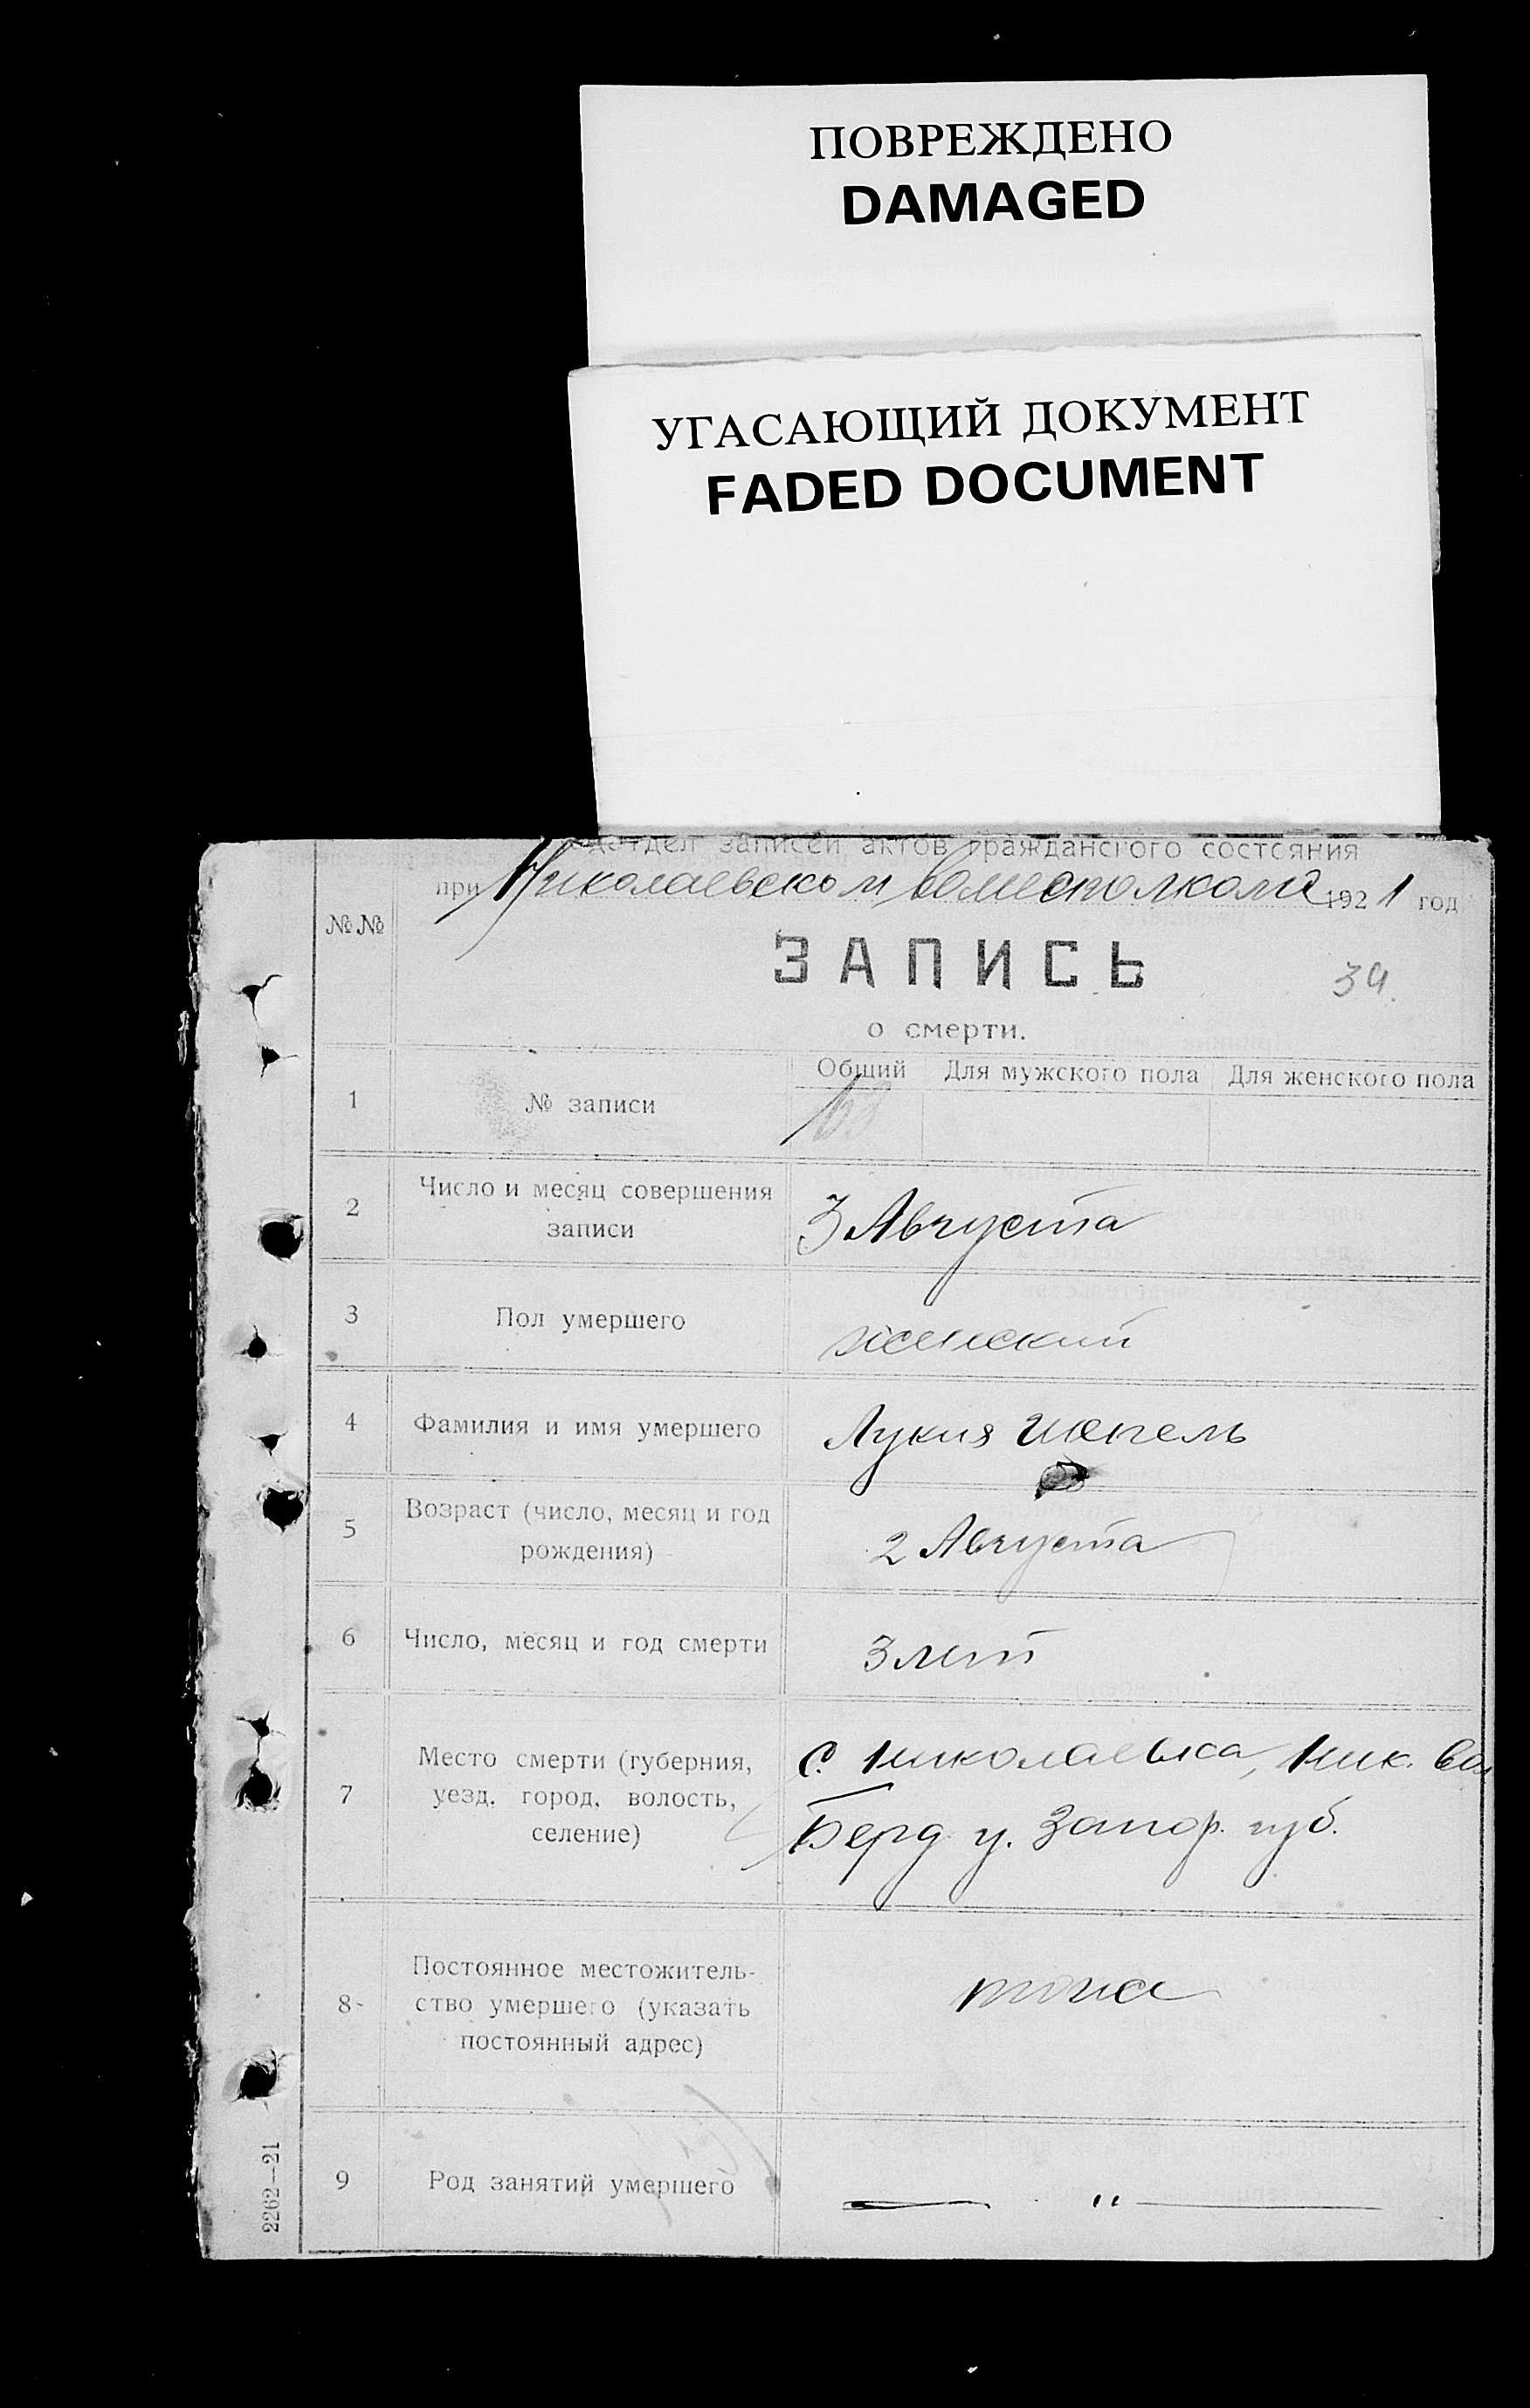 ПОВРЕЖДЕНО
DAMAGED
УГАСАЮЩИЙ ДОКУМЕНТ
FADED DOCUMENT
отдел записей актов гражданского состояния
при Николаевском волисполкоме 1921 год
№№
ЗАПИСЬ
34.
о смерти.
Общий Для мужского пола Для женского пола
1 № записи
2 Число и месяц совершения
записи
3 Августа
3 Пол умершего женский
4 Фамилия и имя умершего Лукия
5 Возраст (число, месяц и год
рождения)
2 Августа
6 Число, месяц и год смерти 3 лет
7 Место смерти (губерния,
уезд, город, волость,
селение)
с. Николаевка, Ник. вол
Берд у. Запор. губ.
8 Постоянное местожитель-
ство умершего (указать
постоянный адрес)
тоже
9 Род занятий умершего — „ —
2262—21